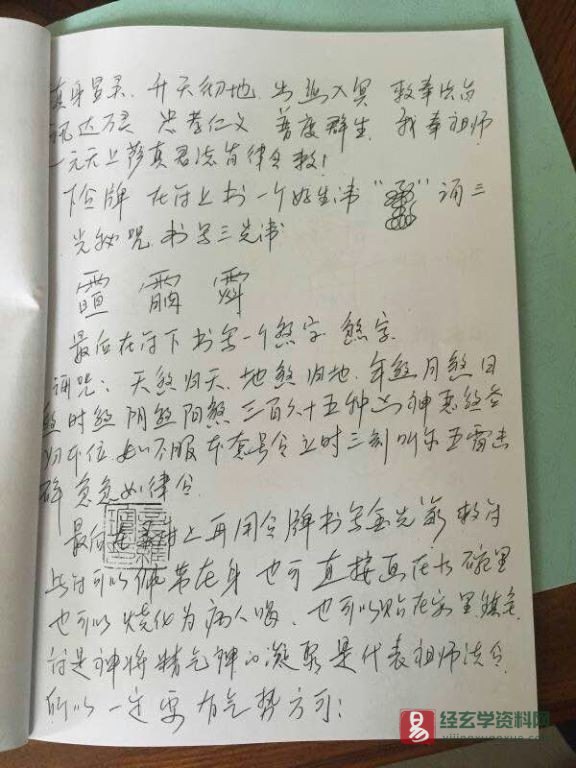 真身显灵 升天彻地 出幽入冥 救奉法旨
讯达万灵 忠孝仁义 普度群生 我奉祖师
一元天上萨真君法旨律令敕！
下令牌 在符上书一个好生讳“ ”诵三
光秘咒 书写三光讳
最后在符下书写一个煞字 煞字
诵咒：天煞归天 地煞归地 年煞月煞日
煞时煞 阴煞阳煞 三百六十五种凶神恶煞各
归本位 如不服本套号令 立时三刻叫尔五雷击
碎 急急如律令
最后在 上再用令牌书写金光 敕符
此符可以佩带在身 也可直接画在水碗里
也可以烧化为病人喝 也可以贴在家里镇宅
符是神将精气神的凝聚是代表祖师法令
所以一定要有气势方可：
易 经玄学资料网